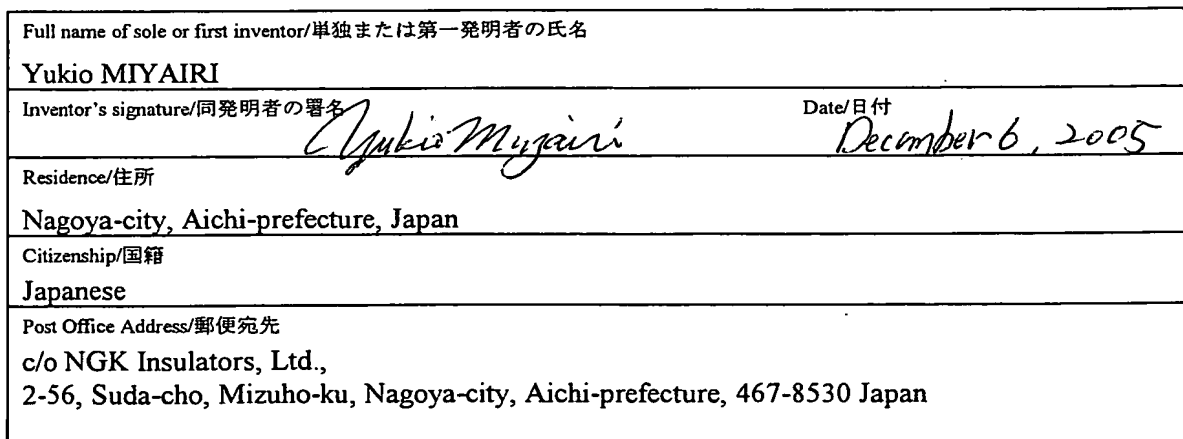 Full name of sole or first inventor/単独または第一発明者の氏名
Yukio MIYAIRI
Inventor's signature/同発明者の署名 Date/日付
Yukio Miyairi December 6, 2005
Residence/住所
Nagoya-city, Aichi-prefecture, Japan
Citizenship/国籍
Japanese
Post Office Address/郵便宛先
c/o NGK Insulators, Ltd.,
2-56, Suda-cho, Mizuho-ku, Nagoya-city, Aichi-prefecture, 467-8530 Japan